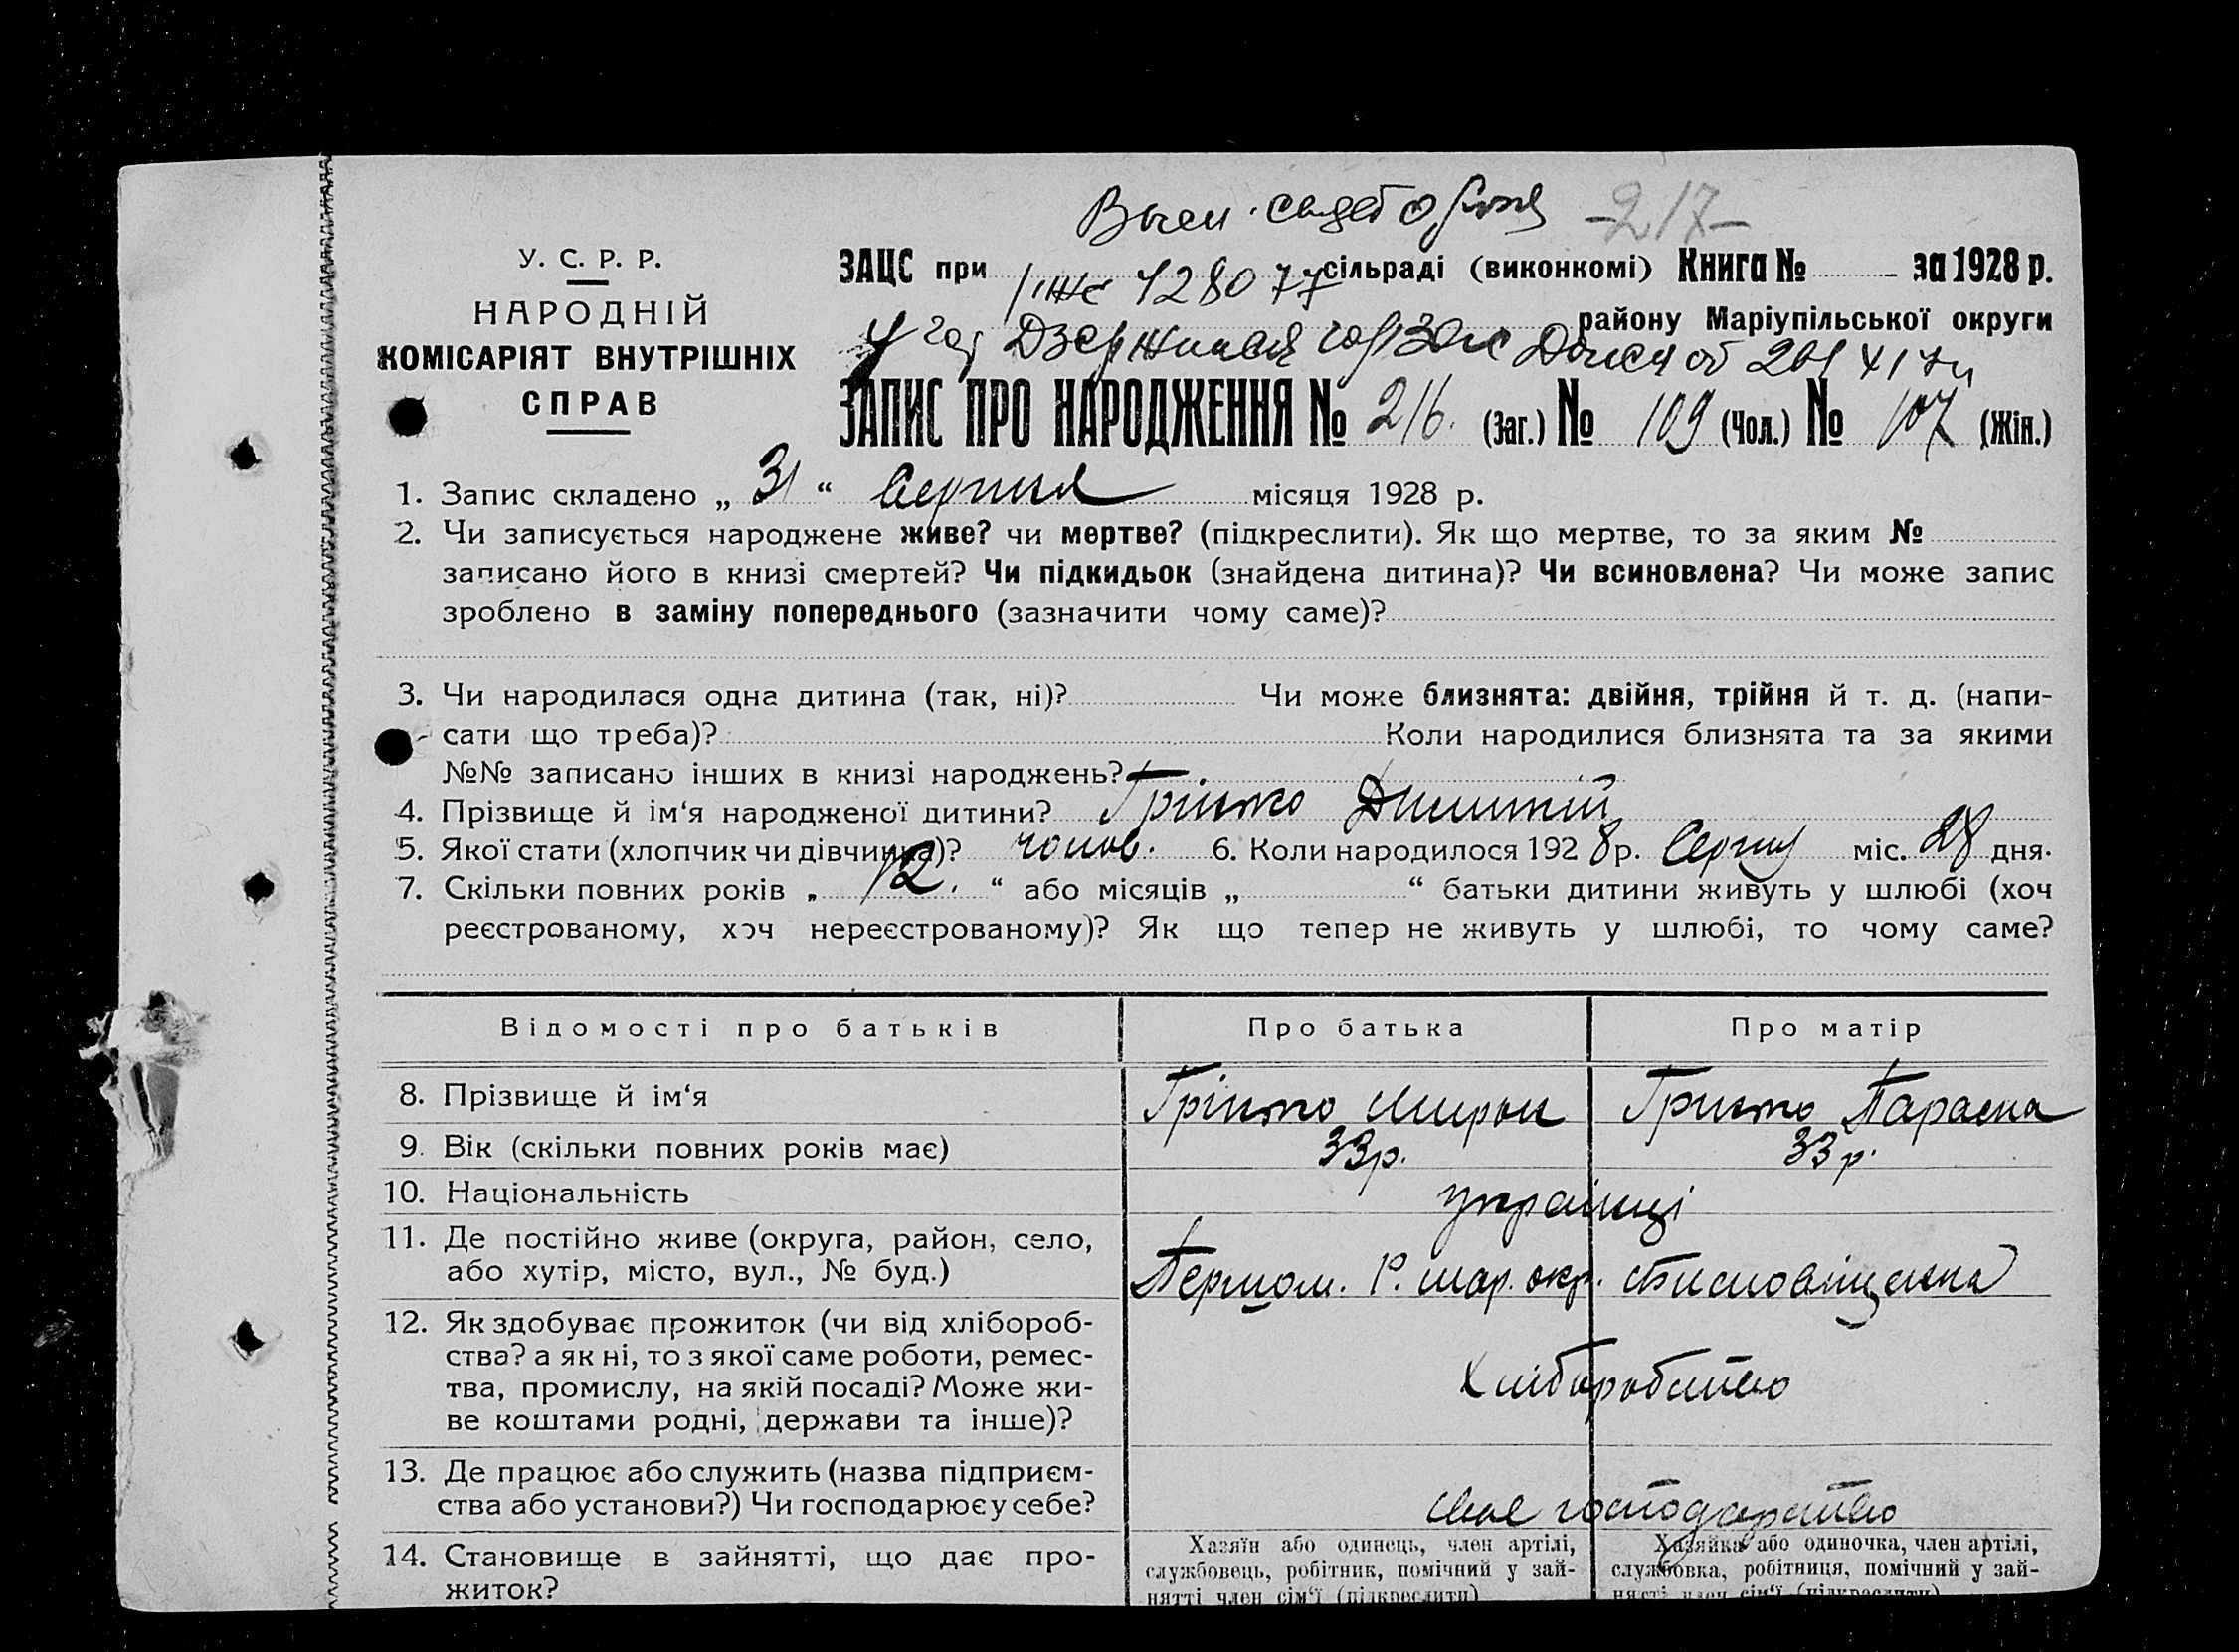 -217-
У. С. Р. Р.
НАРОДНІЙ
КОМІСАРІЯТ ВНУТРІШНІХ
СПРАВ
ЗАЦС при сільраді (виконкомі) Книга № за 1928 р.
428077
району Маріупільської округи
ЗАПИС ПРО НАРОДЖЕННЯ № 216. (Заг.) № 109 (Чол.) № 107 (Жін.)
1. Запис складено „ 31 “ Серпня місяця 1928 р.
2. Чи записується народжене живе? чи мертве? (підкреслити). Як що мертве, то за яким №
записано його в книзі смертей? Чи підкидьок (знайдена дитина)? Чи всиновлена? Чи може запис
зроблено в заміну попереднього (зазначити чому саме)?
3. Чи народилася одна дитина (так, ні)? Чи може близнята: двійня, трійня й т. д. (напи-
сати що треба)? Коли народилися близнята та за якими
№№ записано інших в книзі народжень?
4. Прізвище й ім‘я народженої дитини? Грінько
5. Якої стати (хлопчик чи дівчинка)? чолов. 6. Коли народилося 1928 р. Серпня міс. 28 дня.
7. Скільки повних років „ 12. “ або місяців „ “ батьки дитини живуть у шлюбі (хоч
реєстрованому, хоч нереєстрованому)? Як що тепер не живуть у шлюбі, то чому саме?
Відомості про батьків Про батька Про матір
8. Прізвище й ім‘я Грінько Мирон Гринько Параска
9. Вік (скільки повних років має) 33 р. 33 р.
10. Національність українці
11. Де постійно живе (округа, район, село,
або хутір, місто, вул., № буд.) Першом. Р. мар. окр.
12. Як здобуває прожиток (чи від хлібороб-
ства? а як ні, то з якої саме роботи, ремес-
тва, промислу, на якій посаді? Може жи-
ве коштами родні, держави та інше)?
Хліборобство
13. Де працює або служить (назва підприєм-
ства або установи?) Чи господарює у себе?
своє господарство
14. Становище в зайнятті, що дає про-
житок?
Хазяїн або одинець, член артілі,
службовець, робітник, помічний у зай-
нятті член сім‘ї (підкреслити)
Хазяйка або одиночка, член артілі,
службовка, робітниця, помічний у зай-
нятті член сім‘ї (підкреслити)